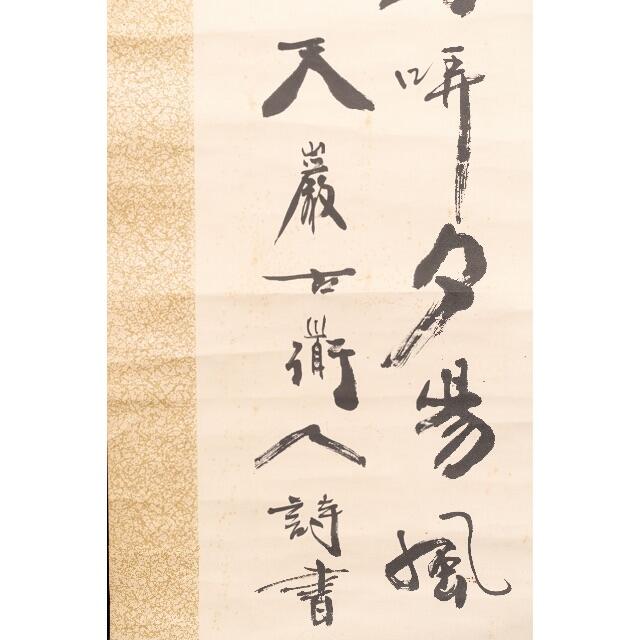 哢夕陽風
天巖古衜人詩書